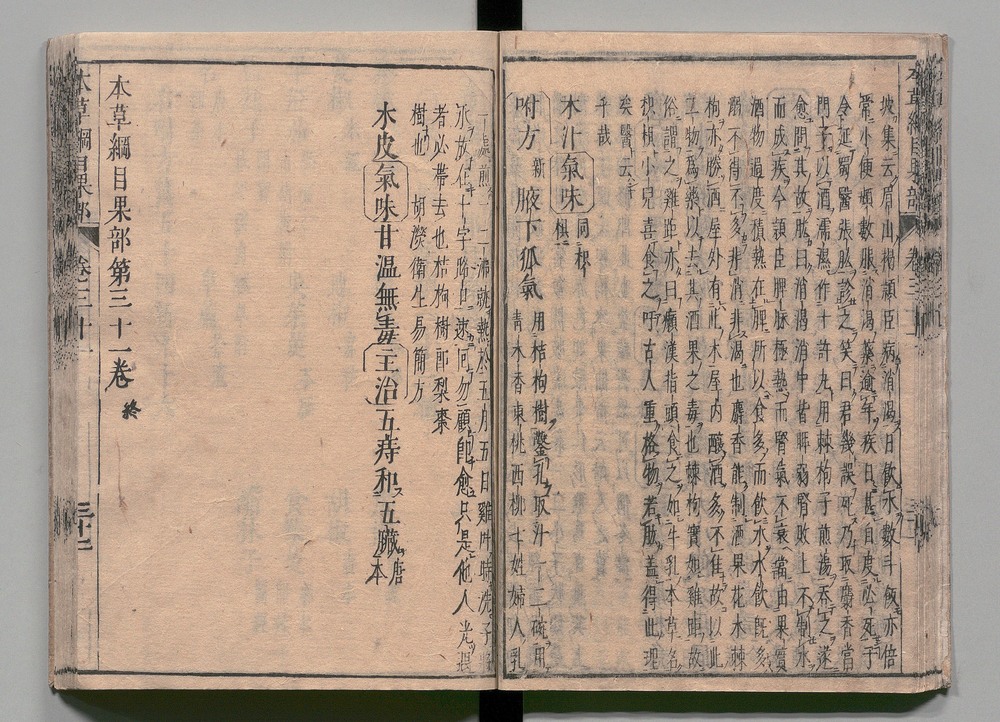 坡集云眉山楊頴臣病消渴日飲水數斗飯亦倍
常小便頻數服消渴藥逾年疾日甚自度必死予
令延蜀醫張肱診之笑曰君幾誤死乃取麝香當
門子以酒濡濕作十許丸用棘枸子煎湯吞之遂
愈問其故肱曰消渴消中皆脾弱腎敗土不制水
而成疾今頴臣脾脉極熱而腎氣不衰當由果實
酒物過度積熱在脾所以食多而飲水水飲既多
溺不得不多非消非渴也麝香能制酒果花木棘
枸亦勝酒屋外有此木屋内釀酒多不佳故以此
二物為藥以去其酒果之毒也棘枸實如雞距故
俗謂之雞距亦曰癩漢指頭食之如牛乳本草名
枳椇小兒喜食之吁古人重格物若肱盖得此理
矣醫云乎
哉
木汁氣味同枳椇
附方新一腋下狐氣用桔枸樹鑿孔取汁一二碗用
青木香東桃西柳七姓婦人乳
一處煎一二沸就熱於五月五日雞叫時洗了
水放在十字路口速回勿顧即愈只是他人先遇
者必帶去也桔枸樹即梨棗
樹也 胡濙衛生易簡方
木皮氣味甘溫無毒主治五痔和五臟唐本
本草綱目果部第三十一卷終
本草綱目果部 卷三十一 三十二